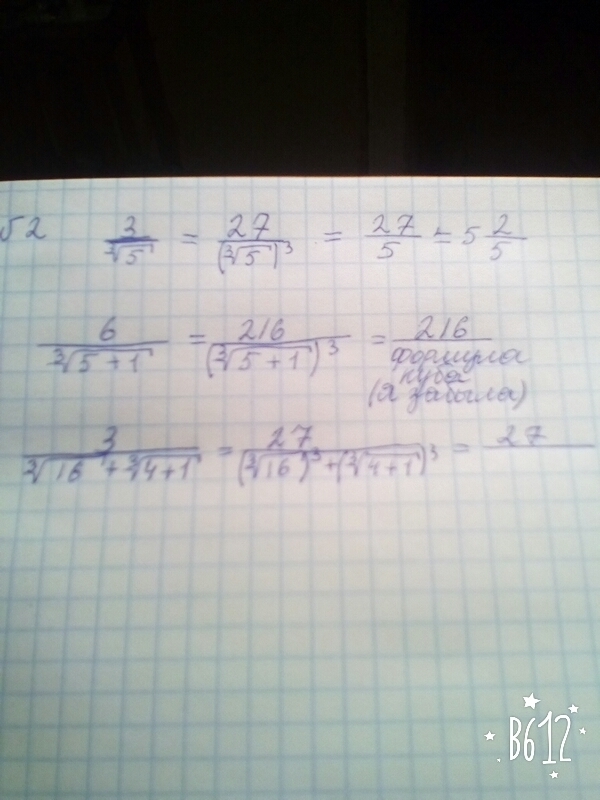 №2 3/∛5 = 27/(∛5)³ = 27/5 = 5 2/5
6/∛(5+1) = 216/(∛(5+1))³ = 216/формула
куба
(я забыла)
3/(∛16 + ∛(4+1)) = 27/((∛16)³ + (∛(4+1))³) = 27/
B612